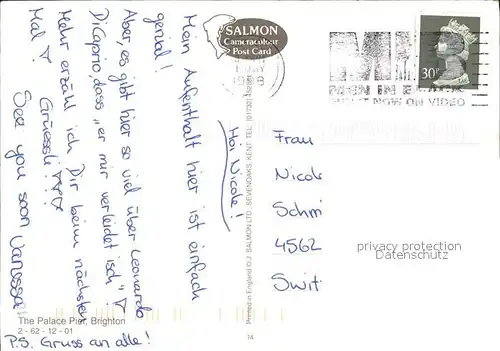 Hoi Nicole!
Mein Aufenthalt hier ist einfach
genial!
Aber, es gibt hier so viel über Leonardo
DiCaprio, dass „er mir verleidet isch"
Mehr erzähl ich Dir beim nächsten
Mal
Grüessli
See you soon Vanessa
P.S. Gruss an alle!
SALMON
Cameracolour
Post Card
MEN IN
NOW ON VIDEO
30P
Frau
Nicole
Schmi
4562
Swit
privacy protection
Datenschutz
Printed in England © J. SALMON LTD. SEVENOAKS. KENT TEL. (01732)
14
The Palace Pier, Brighton
2 - 62 - 12 - 01